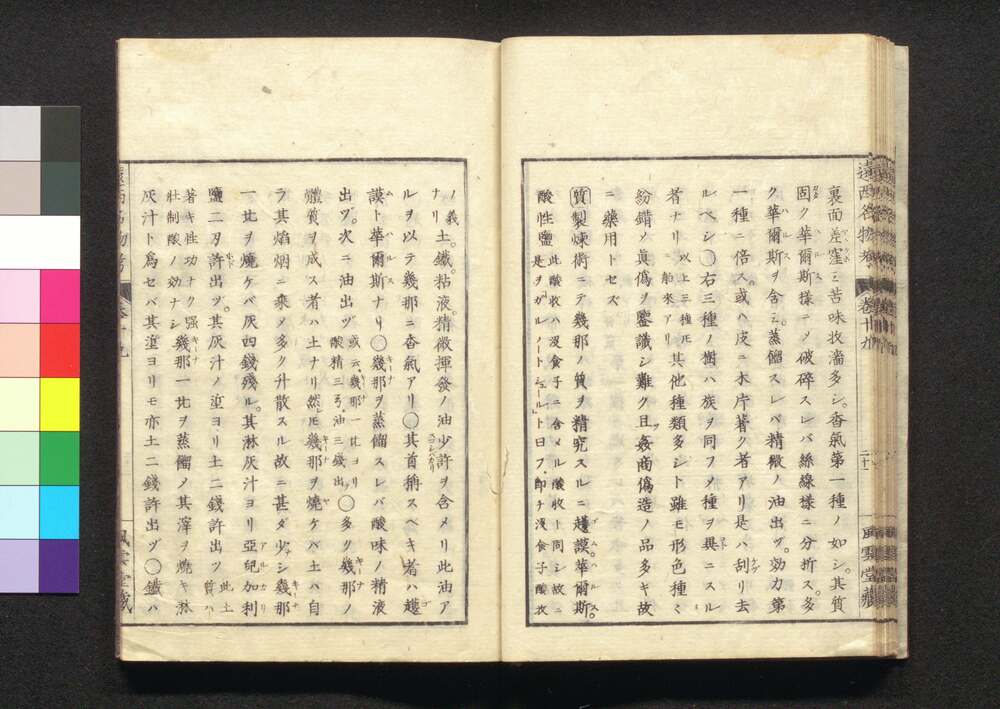 裏面差窪ミ苦味收濇多シ。香氣第一種ノ如シ。其質
固ク華爾斯様ニシテ破碎スレバ絲線様ニ分析ス。多
ク華爾斯ヲ含ミ蒸餾スレバ精微ノ油出ヅ。効力第
一種ニ倍ス。或ハ皮ニ木片著ク者アリ是ハ刮リ去
ルベシ〇右三種ノ樹ハ族ヲ同フシテ種ヲ異ニスル
者ナリ以上三種氏ニ舶來アリ其他種類多シト雖モ形色種々
紛錯シテ真偽ヲ鑒識シ難ク且姦商偽造ノ品多キ故
ニ藥用トセズ
質製煉術ニテ幾那ノ質ヲ精究スルニ護謨華爾斯。
酸性鹽此酸收ハ沒食子ニ含メル酸收ト同シ故ニ是ヲ「ガルノートシュール」ト曰フ即チ沒食子酸收
ノ義土。鐵。粘液。精微揮發ノ油少許ヲ含メリ此油ア
ナリ
ルヲ以テ幾那ニ香氣アリ〇其首稱スベキ者ハ護
謨ト華爾斯ナリ〇幾那ヲ蒸餾スレバ酸味ノ精液
出ヅ。次ニ油出ヅ或云幾那一比ヨリ酸精三弓油三錢出〇多ク幾那ノ
體質ヲ成ス者ハ土ナリ然氏幾那ヲ燒ケバ土ハ自
ラ其焰烟ニ乘シテ多ク升散スル故ニ甚ダ少シ幾那
一比ヲ燒ケバ灰四錢殘ル。其淋灰汁ヨリ亞兒加利
鹽二刃許出ヅ。其灰汁ノ滓ヨリ土二錢許出ヅ此土質ハ
著キ性功ナク强壯制酸ノ効ナシ幾那一比ヲ蒸餾シテ其滓ヲ燒キ淋
灰汁ト爲セバ其滓ヨリモ亦土二錢許出ヅ〇鐵ハ
遠西名物考 卷十九
二十一
風雲堂藏